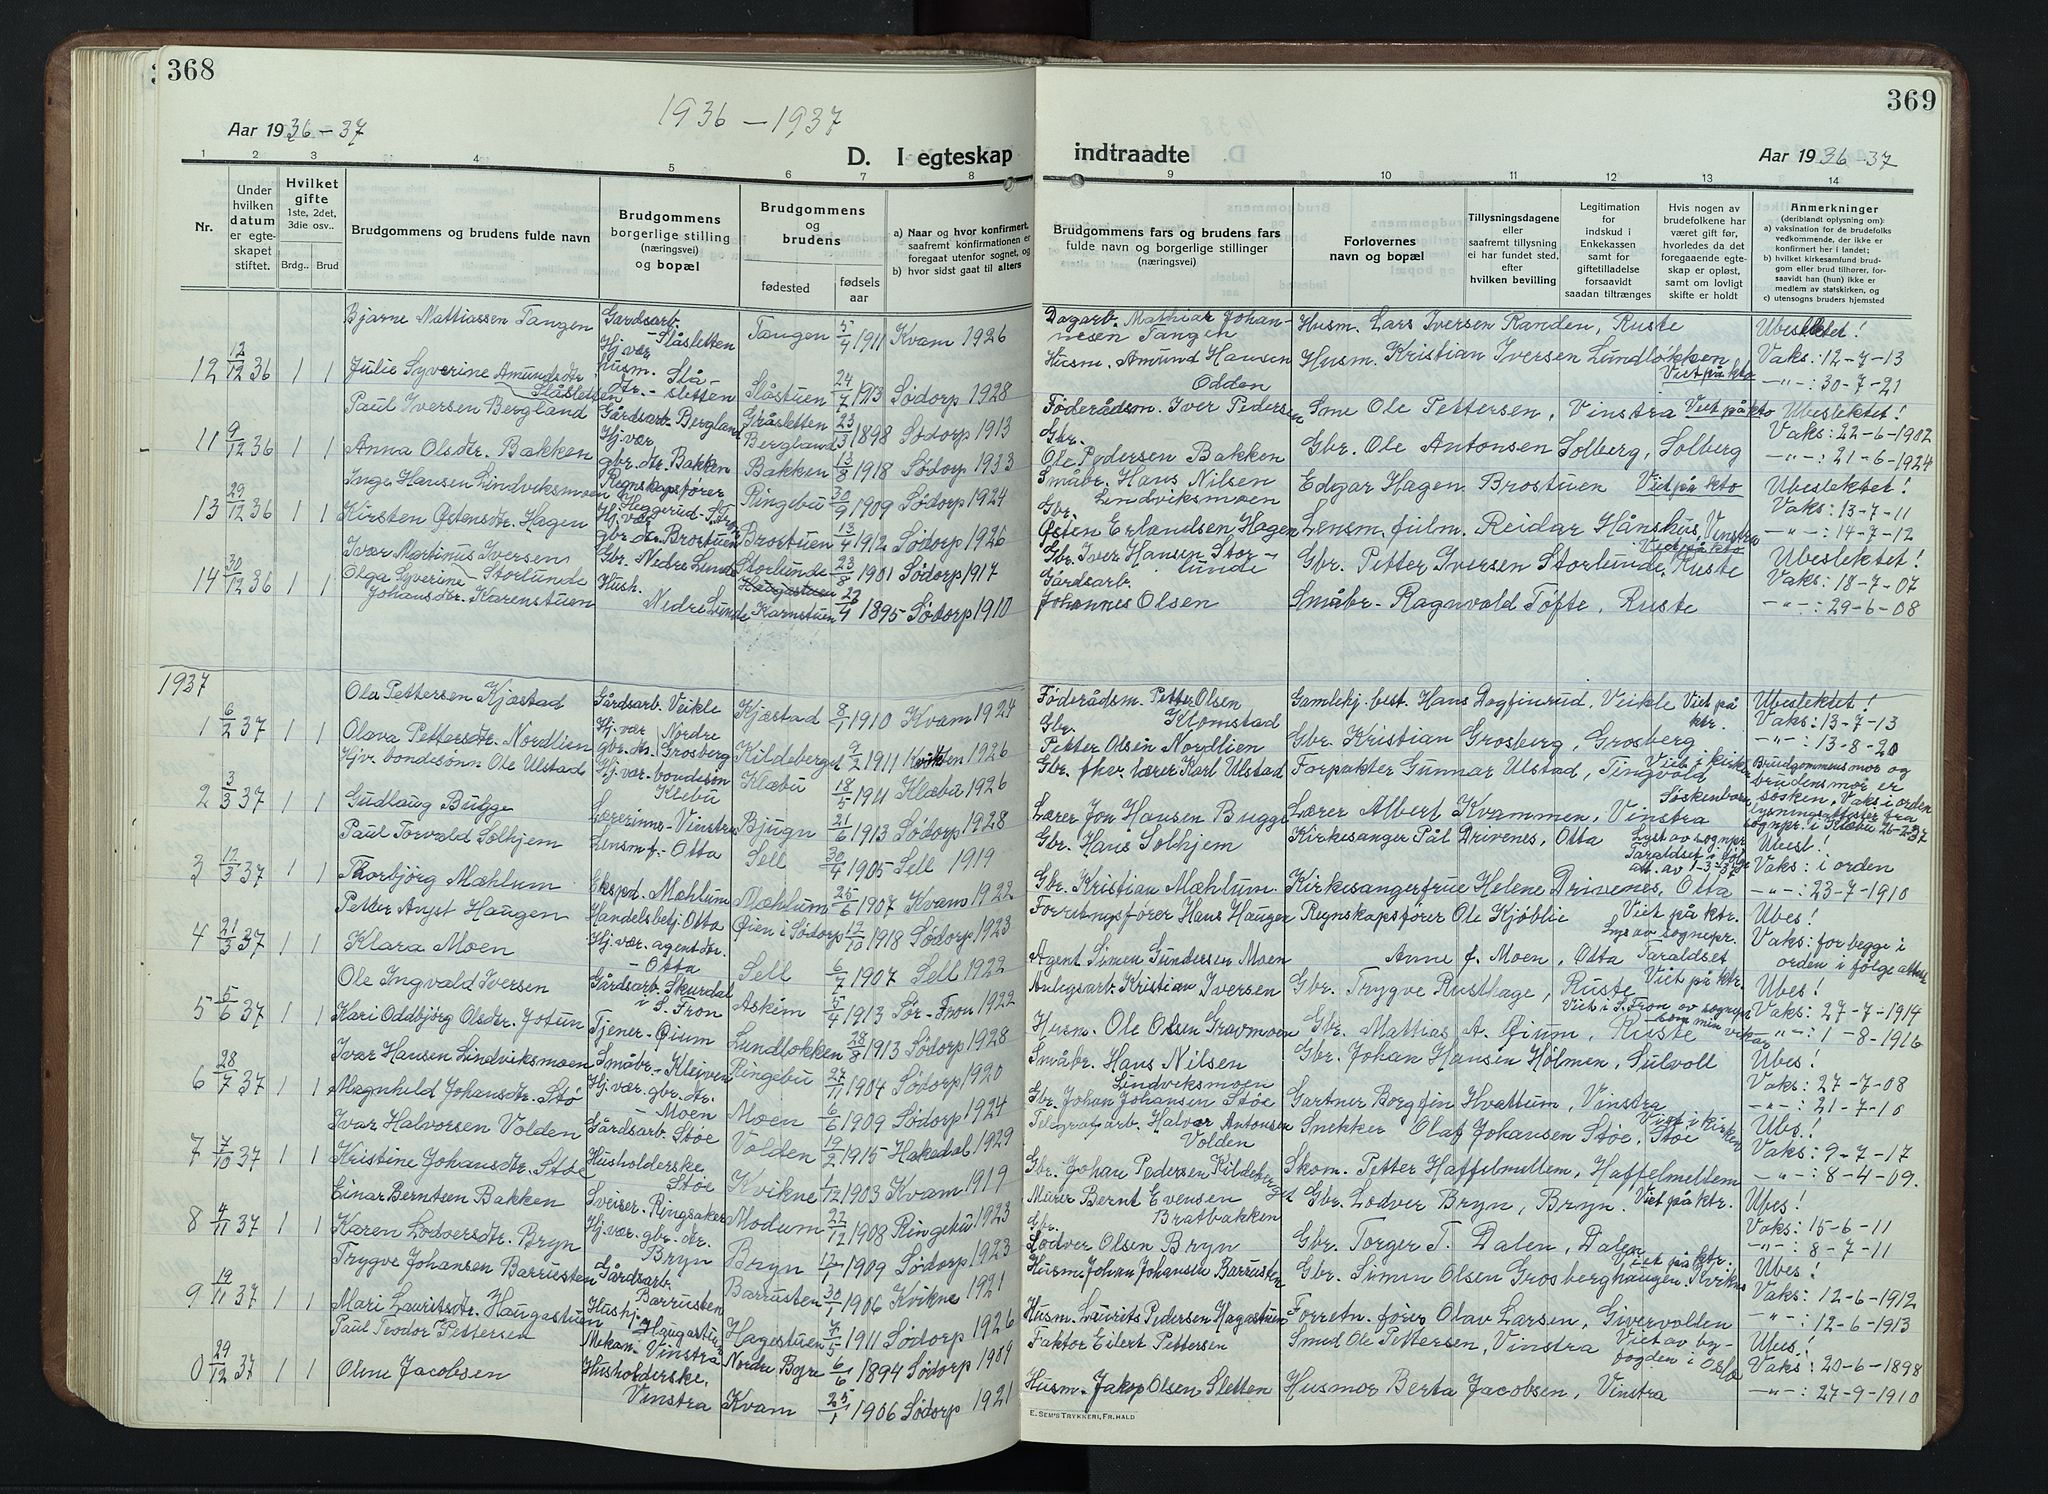 368
Aar 1936-37
1936-1937
D. I egteskap
1 2 3 4 5 6 7 8
Nr.
Under hvilken datum er egteskapet stiftet.
Hvilket gifte
1ste, 2det, 3die osv..
Brdg.. Brud
Brudgommens og brudens fulde navn
Brudgommens borgerlige stilling (næringsvei) og bopæl
Brudgommens og brudens
fødested
fødsels aar
a) Naar og hvor konfirmert, saafremt konfirmationen er foregaat utenfor sognet, og
b) hvor sidst gaat til alters
Bjarne Mattiassen Tangen Gardsarb. Slåsletten Tangen 5/4 1911 Kvam 1926
12 12/12 36 1 1 Julie Syverine Amundsdtr. Slåsletten Hj.vær husm. dtr. - Slåsletten Slåstuen 24/7 1913 Sødorp 1928
Paul Iversen Bergland Gårdsarb. Bergland Gråsletten Bergland 23/3 1898 Sødorp 1913
11 9/12 36 1 1 Anna Olsdtr. Bakken Hj.vær gbr. dtr. Bakken Bakken 13/8 1918 Sødorp 1933
Inge Hansen Lindviksmoen Regnskapsfører Heggerud - S. Fron Ringebu 30/9 1909 Sødorp 1924
13 29/12 36 1 1 Kirsten Østensdtr. Hagen Hj.vær gbr. dtr Brostuen Brostuen 13/4 1912 Sødorp 1926
Ivar Martinus Iversen Storlunde Gbr. Nedre Lunde Storlunde 23/8 1901 Sødorp 1917
14 30/12 36 1 1 Olga Syverine Johansdtr. Karenstuen Hush. Nedre Lunde Karnstuen 22/4 1895 Sødorp 1910
1937
Ole Pettersen Kjæstad Gårdsarb. Veikle Kjæstad 8/1 1910 Kvam 1924
1 6/2 37 1 1 Olava Pettersdtr. Nordlien Hj.vær Nordre gbr. dtr. Grosberg Kildeberget 9/2 1911 1926
Hjv. bondesønn Ole Ulstad Hj.vær. bondesøn Klebu Klæbu 18/5 1911 Klæbu 1926
2 3/3 37 1 1 Gudlaug Bugge Lærerinne - Vinstra Bjugn 21/6 1913 Sødorp 1928
Paul Torvald Solhjem Lensm f. - Otta Sell 30/4 1905 Sell 1919
3 12/3 37 1 1 Thorbjörg Mæhlum Eksped. Mæhlum Mæhlum 25/6 1907 Kvam 1922
Petter Angst Haugen Handelsbetj. Otta Øien i Sødorp 17/10 1918 Sødorp 1923
4 21/3 37 1 1 Klara Moen Hj. vær. agent dtr. - Otta Sell 6/7 1907 Sell 1922
Ole Ingvald Iversen Gårdsarb. Skurdal i S. Fron Askim 5/4 1913 Sør-Fron 1922
5 5/6 37 1 1 Kari Oddbjörg Olsdtr. Jotun Tjener - Øium Lundlokken 28/8 1913 Sødorp 1928
Ivar Hansen Lindviksmoen Småbr. - Kleiven Ringebu 27/11 1904 Sødorp 1920
6 28/7 37 1 1 Magnhild Johansdtr. Stø Hj.vær. gbr. dtr. - Moen Moen 6/6 1909 Sødorp 1924
Ivar Halvorsen Volden Gårdsarb. Støe Volden 19/2 1915 Hakadal 1929
7 7/10 37 1 1 Kristine Johansdtr. Støe Husholderske Støe Kvikne 1/12 1903 Kvam 1919
Einar Berntsen Bakken Sveiser. Ringsaker Modum 22/12 1908 Ringebu 1923
8 4/11 37 1 1 Karen Lodversdtr. Bryn Hj.vær. gbr. dtr. Bryn Bryn 17/1 1909 Sødorp 1923
Trygve Johansen Barrusten Gårdsarb. Barrusten Barrusten 30/1 1906 Kvikne 1921
9 19/11 37 1 1 Mari Lauritsdtr. Haugastuen Hushj. Haugastuen Hagestuen 7/5 1911 Sødorp 1926
Paul Teodor Pettersen Mekan. Vinstra Nordre Byre 6/6 1894 Sødorp 1909
0 29/12 37 1 1 Oline Jacobsen Husholderske, Vinstra Kvam 25/1 1906 Sødorp 1921
369
indtraadte
Aar 1936-37
9 10 11 12 13 14
Brudgommens fars og brudens fars fulde navn og borgerlige stillinger (næringsvei)
Forlovernes navn og bopæl
Tillysningsdagene eller saafremt tillysning ei har fundet sted, efter hvilken bevilling
Legitimation for indskud i Enkekassen samt for giftetilladelse forsaavidt saadan tiltrænges
Hvis nogen av brudefolkene har været gift før, hvorledes da det foregaaende egteskap er opløst, samt om lovligt skifte er holdt
Anmerkninger (deriblandt oplysning om):
a) vaksination for de brudefolks vedkommende, der ikke er konfirmert her i landet;
b) hvilket kirkesamfund brudgom eller brud tilhører, forsaavidt han (hun) ikke er medlem av statskirken, og
c) utensogns bruders hjemsted
Dagarb. Mathias Johannesen Tangen Husm. Lars Iversen Randen, Ruste Ubeslektet!
Husm. Amund Hansen Odden Husm. Kristian Iversen Lundløkken Viet på kto Vaks: 12-7-13
-"-: 30-7-21
Føderådsm. Iver Pedersen Sme Ole Pettersen, Vinstra Viet på kto Ubeslektet!
Vaks: 22-6-1902
Gbr. Ole Pedersen Bakken Gbr. Ole Antonsen Solberg, Solberg -"-: 21-6-1924
Småbr. Hans Nilsen Lindviksmoen Edgar Hagen Brostuen Viet på kto Ubeslektet!
Vaks: 13-7-11
Gbr. Østen Erlandsen Hagen Lensm. fulm. Reidar Hånshus, Vinstra -"-: 14-7-12
Gbr. Iver Hansen Storlunde Gbr. Petter Iversen Storlunde, Ruste Viet på kto Ubeslektet!
Vaks: 18-7-07
Gårdsarb. Johannes Olsen Småbr. Ragnvald Tofte, Ruste -"-: 29-6-08
Føderådsm. Petter Olsen Klomstad Gamlehj. best. Hans Dogfinrud, Veikle Viet på ktr. Ubeslektet!
Vaks: 13-7-13
Gbr. Petter Olsen Nordlien Gbr. Kristian Grosberg, Grosberg -"-: 13-8-20
Gbr. fhev. lærer Karl Ulstad Forpakter Gunnar Ulstad, Tingvold Viet i kirken Brudgommens mor og brudens mor er søsken. Vaks i orden
Lærer Jon Hansen Bugge Lærer Albert Kvammen, Vinstra Søskenbarn lysningsattester fra sognpr. i Klæbu 26-2-37
Gbr. Hans Solhjem Kirkesanger Pål Drivenes, Otta Lyst av sognepr. Taraldset i følge att. av 1-3-37 Ubesl.!
Vaks: i orden
Gbr. Kristian Mæhlum Kirkesangerfrue Helene Drivenes, Otta -"-: 23-7-1910
Forretningsfører Hans Haugen Regnskapsfører Ole Kjøblie Viet på ktr. Ubes!
Lys av sognepr. Taraldset Vaks: for begge i orden i følge attest
Agent Simen Gundersen Moen Anne f. Moen, Otta
Anlegsarb. Kristian Iversen Gbr. Trygve Rusthage, Ruste Viet på ktr. Ubes!
Viet i S. Fron av sognepr. som min vikar Vaks: 27-7-1914
Husm. Ole Olsen Gravmoen Gbr. Mattias A. Øium, Ruste -"-: 1-8-1916
Småbr. Hans Nilsen Lindviksmoen Gbr. Johan Hansen Holmen, Sulvoll Ubes!
Vaks: 27-7-08
Gbr. Johan Johansen Støe Gartner Borgfin Hvattum, Vinstra -"-: 21-7-10
Telegrafarb. Halvor Antonsen Volden Snekker Olaf Johansen Støe, Støe Viet i kirken Ubs!
Vaks: 9-7-17
Gbr. Johan Pedersen Kildeberget Skom. Petter Haffelmellem, Haffelmellem -"-: 8-4-09.
Murer Bernt Evensen Bratbakken Gbr. Lodver Bryn, Bryn. Viet på ktr. Ubes!
Vaks: 15-6-11
Gbr. Lodver Olsen Bryn Gbr. Torger T. Dalen, Dalen -"-: 8-7-11
Husm. Johan Johansen Barrusten Gbr. Simen Olsen Grosberghaugen, Kvikne Viet på ktr. Ubes!
Vaks: 12-6-1912
Husm. Laurits Pedersen Hagastuen Forretn. fører Olav Larsen, Givervolden -"-: 12-6-1913
Faktor Eilert Pettersen Smed Ole Pettersen, Vinstra Viet av byfogden i Oslo Ubes!
Vaks: 20-6-1898
Husm. Jakop Olsen Sletten Husmor Berta Jacobsen, Vinstra -"-: 27-9-1910
E. SEM'S TRYKKERI, FR.HALD